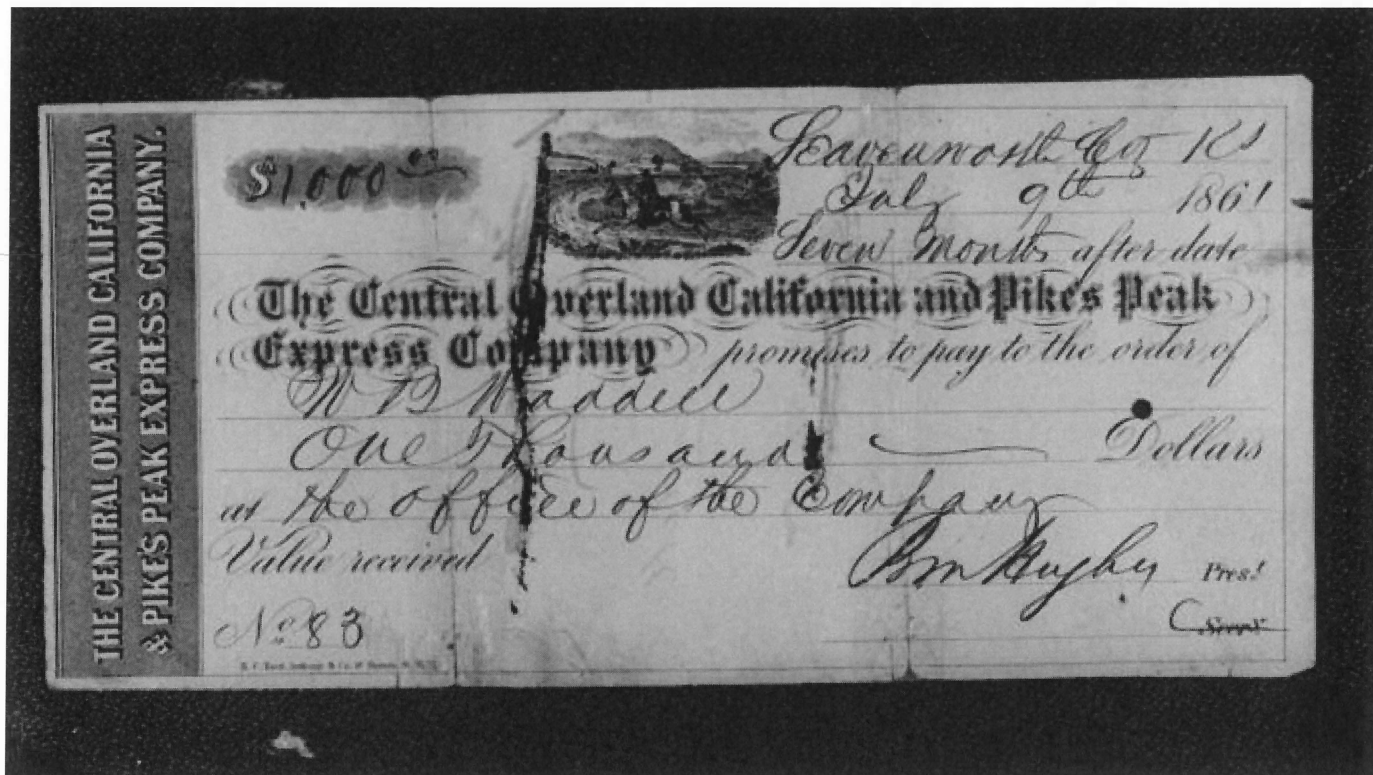 THE CENTRAL OVERLAND CALIFORNIA
& PIKE'S PEAK EXPRESS COMPANY.
$1,000 00
Leavenworth City Ks
July 9th 1861
Seven Months after date
The Central Overland California and Pike's Peak
Express Company promises to pay to the order of
W B Waddell
One Thousand Dollars
at the office of the Company
Value received
Bm Hughes Prest
No 83